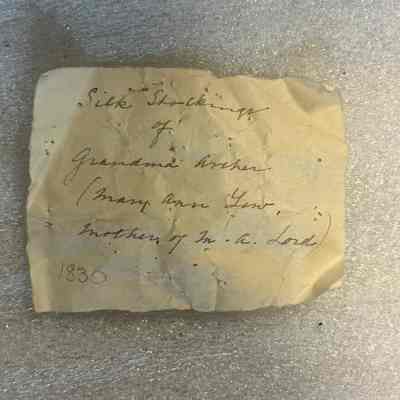 Silk Stockings
of
Grandma Archer
(Mary Ann Law,
mother of M. A. Lord)
1830